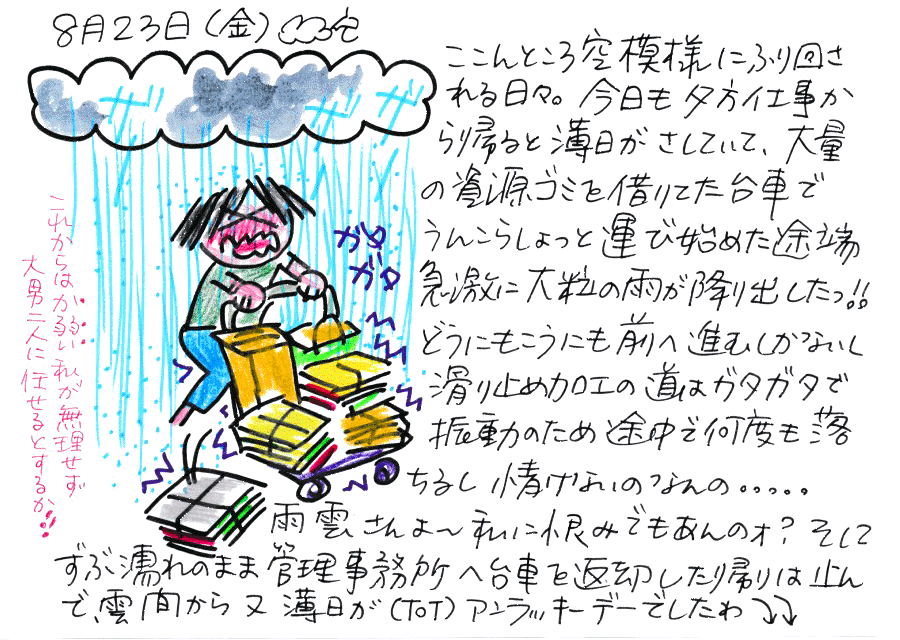 8月23日(金)
ここんところ空模様にふり回さ
れる日々。今日も夕方仕事か
ら帰ると薄日がさしていて、大量
の資源ゴミを借りてた台車で
うんこらしょっと運び始めた途端
急激に大粒の雨が降り出したっ!!
どうにもこうにも前へ進むしかないし
滑り止め加工の道はガタガタで
振動のため途中で何度も落
ちるし情けないのなんの.....
雨雲さんよ〜私に恨みでもあんのォ?そして
ずぶ濡れのまま管理事務所へ台車を返却したり帰りは止ん
で、雲間から又薄日が(ToT)アンラッキーデーでしたわ↓↓
ガタ
ガタ
これからはか弱い私が無理せず
大男二人に任せるとするか!!